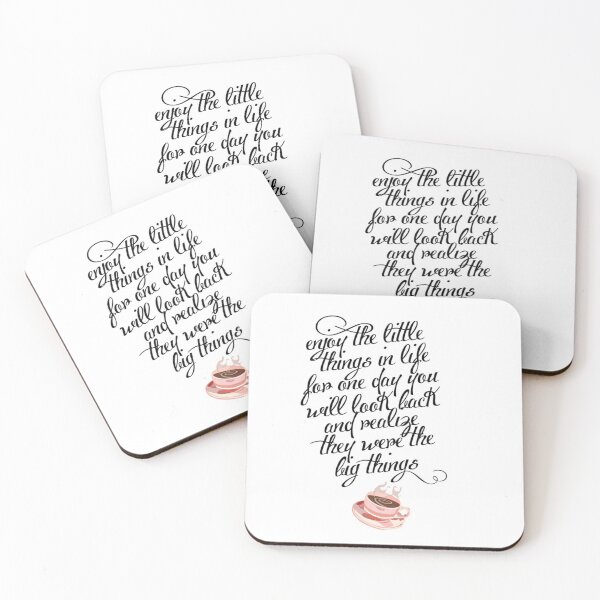 enjoy the little
things in life
for one day you
will look back
enjoy the little
things in life
for one day you
will look back
and realize
they were the
big things
enjoy the little
things in life
for one day you
will look back
and realize
they were the
big things
enjoy the little
things in life
for one day you
will look back
and realize
they were the
big things